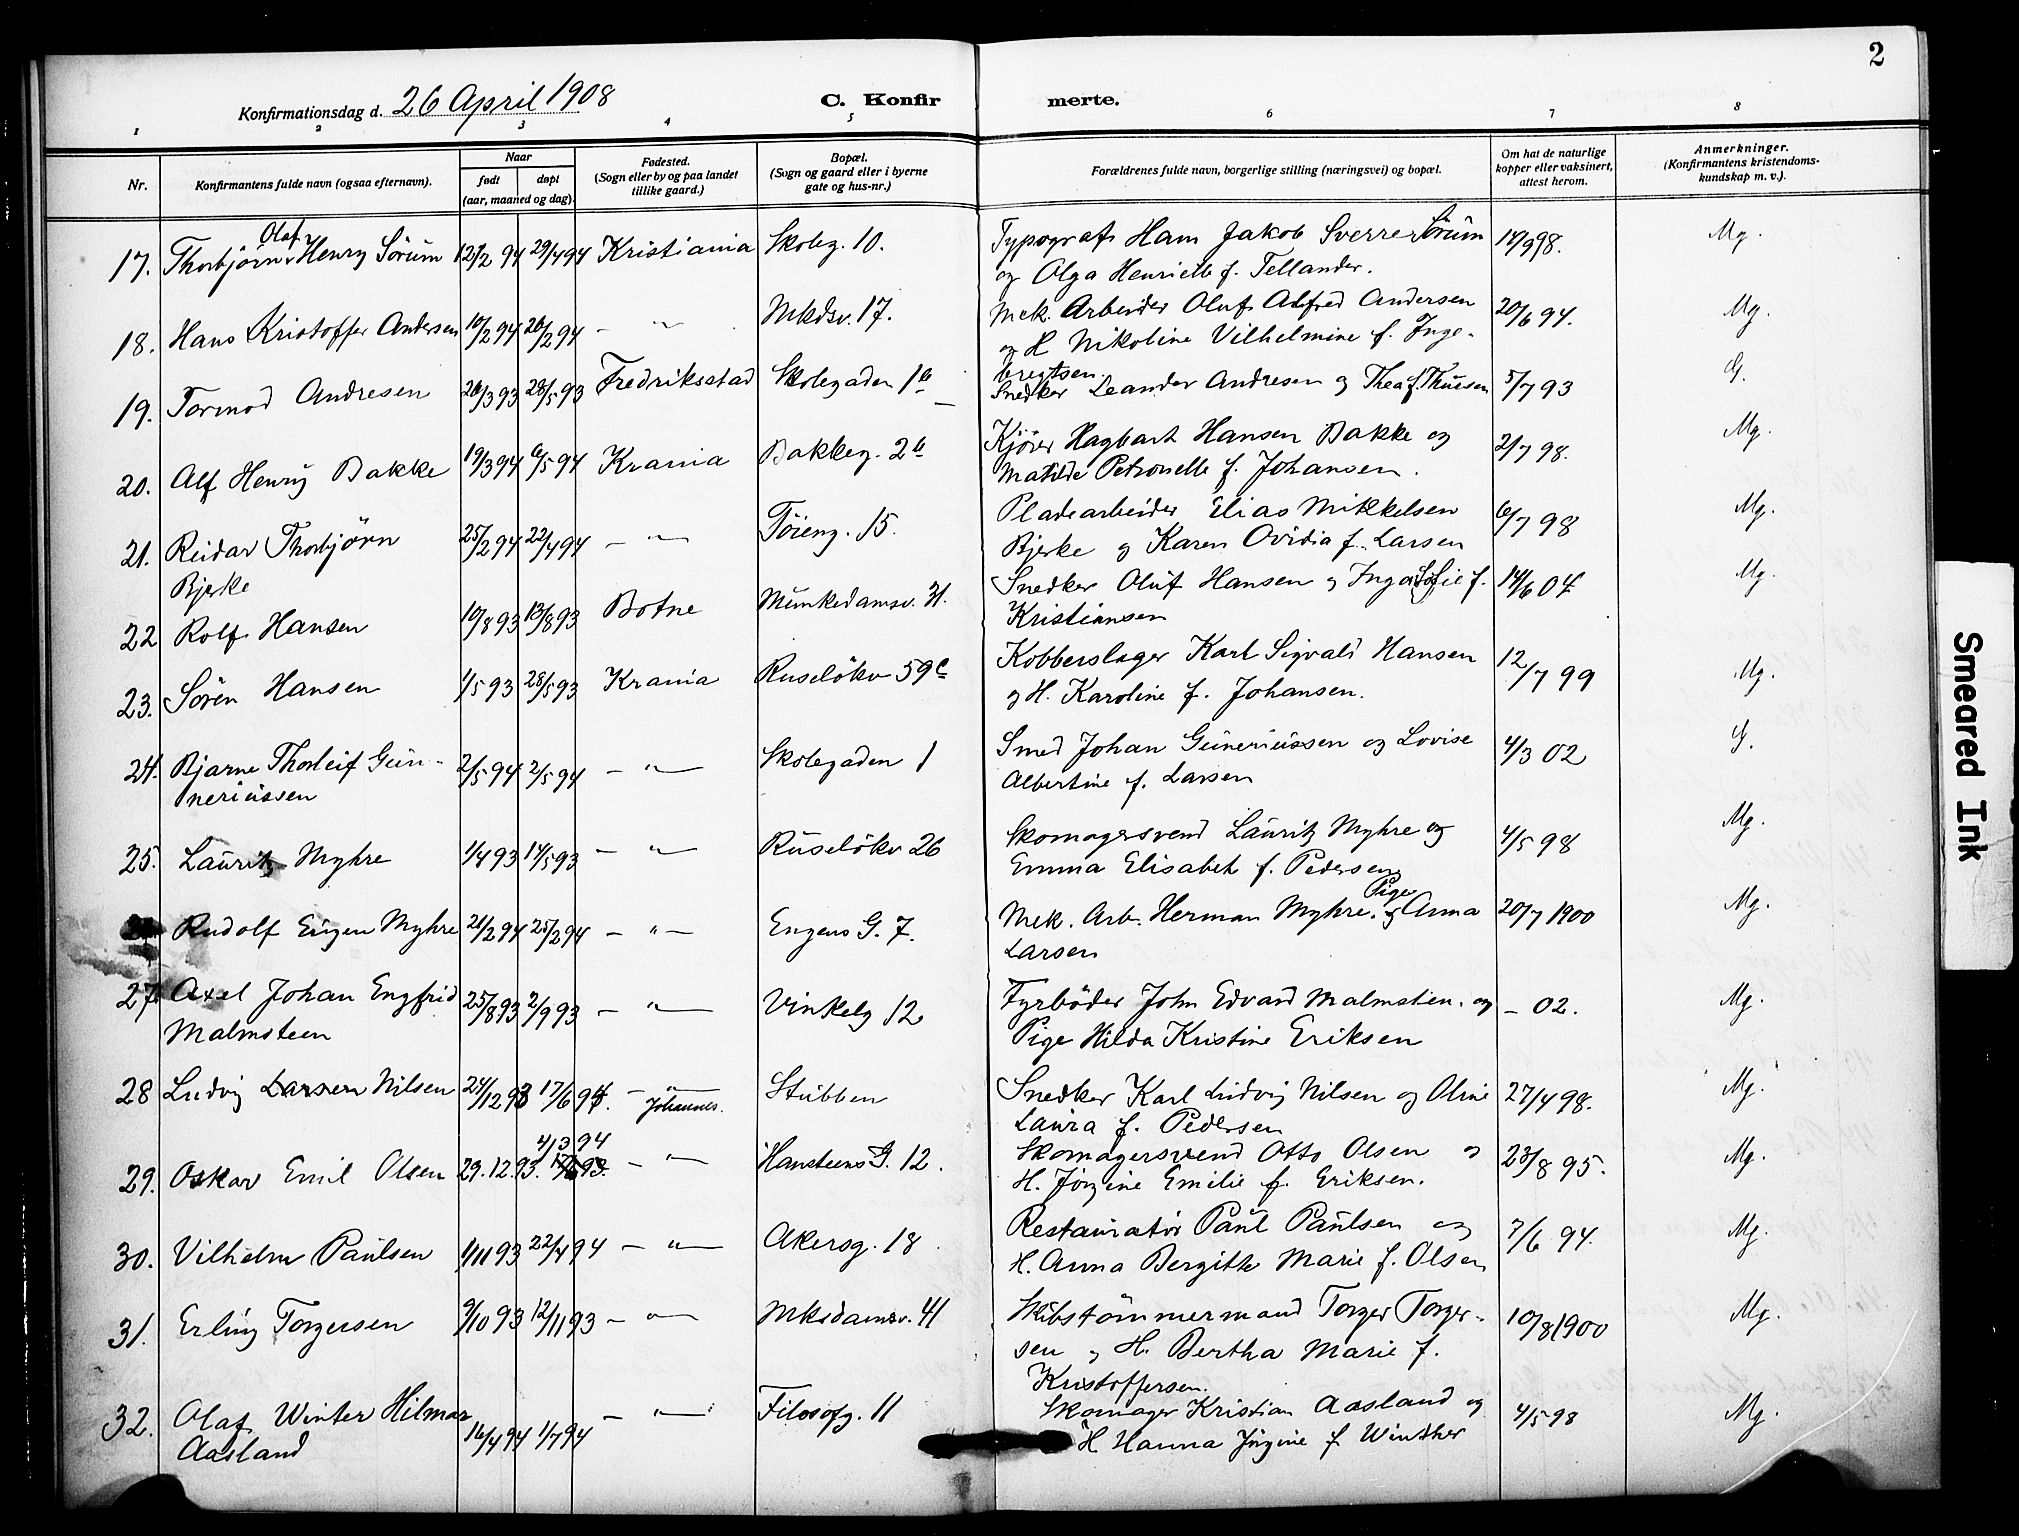 2
Konfirmationsdag d. 26 April 1908
C. Konfir merte.
1 2 3 4 5 6 7 8
Nr.
Konfirmantens fulde navn (ogsaa efternavn).
Naar
født
døpt
(aar, maaned og dag).
Fødested.
(Sogn eller by og paa landet
tillike gaard.)
Bopæl.
(Sogn og gaard eller i byerne
gate og hus-nr.)
Forældrenes fulde navn, borgerlige stilling (næringsvei) og bopæl.
Om hat de naturlige
kopper eller vaksinert,
attest herom.
Anmerkninger.
(Konfirmantens kristendoms-
kundskap m. v.).
Olaf
17. Thorbjörn Henry Sörum 12/2 94 29/4 94 Kristiania Skoleg. 10. Typograf Hans Jakob Sverre Sörum 14/9 98. Mg.
og Olga Henriette f. Tellander.
18. Hans Kristoffer Andersen 10/2 94 26/2 94 — " — Mkdsv. 17. Mek. Arbeider Oluf Alfred Andersen 20/6 94. Mg.
og H Nikoline Vilhelmine f. Inge-
bregtsen.
19. Tormod Andresen 26/3 93 28/5 93 Fredriksstad Skolegaden 1b Snedker Leander Andresen og Thea f. Thuesen 5/7 93 G.
20. Alf Henry Bakke 19/3 94 6/5 94 Krania Bakkeg. 2b Kjörer Hagbart Hansen Bakke og 2/7 98. Mg.
Matilde Petronelle f. Johansen.
21. Reidar Thorbjörn 25/2 94 22/4 94 — " — Töieng. 15. Pladearbeider Elias Mikkelsen 6/7 98 Mg.
Bjerke Bjerke og Karen Ovidia f. Larsen
22 Rolf Hansen 10/8 93 13/8 93 Botne Munkedamsv. 31. Snedker Oluf Hansen og Inga Sofie f. 14/6 04 Mg.
Kristiansen
23. Sören Hansen 1/5 93 28/5 93 Krania Ruselökv 59c Kobberslager Karl Sigvald Hansen 12/7 99 Mg.
og H. Karoline f. Johansen.
24. Bjarne Thorleif Gun- 2/5 94 2/5 94 — " — Skolegaden 1 Smed Johan Guneriussen og Lovise 4/3 02 G.
neriussen Albertine f. Larsen
25. Lauritz Myhre 1/4 93 14/5 93 — " — Ruselökv 26 Skomagersvend Lauritz Myhre og 4/5 98 Mg.
Emma Elisabeth f. Pedersen
Rudolf Eugen Myhre 21/2 94 25/2 94 — " — Engens G. 7. Mek. Arb. Herman Myhre. og Pige Anna 20/7 1900 Mg.
Larsen
27. Axel Johan Engfrid 25/8 93 2/9 93 — " — Vinkelg 12 Fyrböder John Edvard Malmsteen. og — 02. Mg.
Malmsteen Pige Hilda Kristine Eriksen
28 Ludvig Larsen Nilsen 24/12 93 17/6 94. — " — Stubben Snedker Karl Ludvig Nilsen og Oline 27/4 98. Mg.
Johannes. Laura f. Pedersen
4/3 94
29. Oskar Emil Olsen 29.12.93. — " — Hansteens G. 12. Skomagersvend Otto Olsen og 23/8 95. Mg.
H. Jörgine Emilie f. Eriksen.
30. Vilhelm Paulsen 1/11 93 22/4 94 — " — Akersg. 18. Restauratör Paul Paulsen og 7/6 94. Mg.
H. Anna Bergitte Marie f. Olsen
31. Erling Torgersen 9/10 93 12/11 93 — " — Mksdamsv. 41 Skibstömmermand Torger Torger- 10/8 1900 Mg.
sen og H. Bertha Marie f.
Kristoffersen.
32. Olaf Winter Hilmar 16/4 94 1/7 94 — " — Filosofg. 11 Skomager Kristian Aasland og 4/5 98 Mg.
Aasland H Hanna Jörgine f Winther
Smeared Ink